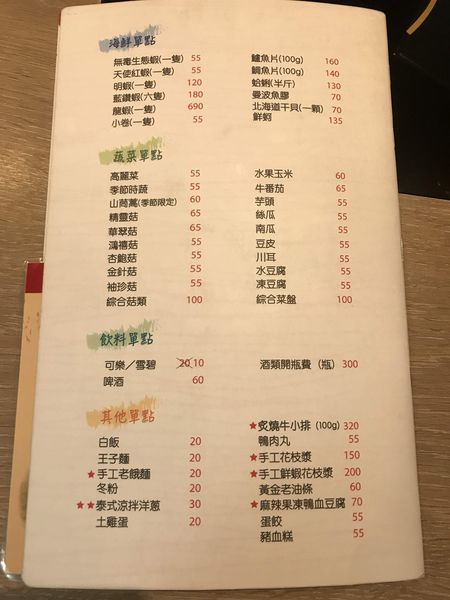 海鮮單點
無毒生態蝦(一隻) 55
天使紅蝦(一隻) 55
明蝦(一隻) 120
藍鑽蝦(六隻) 180
龍蝦(一隻) 690
小卷(一隻) 55
鱸魚片(100g) 160
鯛魚片(100g) 140
蛤蜊(半斤) 130
曼波魚膠 70
北海道干貝(一顆) 70
鮮蚵 135
蔬菜單點
高麗菜 55
季節時蔬 55
山茼萵(季節限定) 60
精靈菇 65
華翠菇 65
鴻禧菇 55
杏鮑菇 55
金針菇 55
袖珍菇 55
綜合菇類 100
水果玉米 60
牛番茄 65
芋頭 55
絲瓜 55
南瓜 55
豆皮 55
川耳 55
水豆腐 55
凍豆腐 55
綜合菜盤 100
飲料單點
可樂／雪碧 20 10
啤酒 60
酒類開瓶費（瓶） 300
其他單點
白飯 20
王子麵 20
★手工老餓麵 20
冬粉 20
★★泰式涼拌洋蔥 30
土雞蛋 20
★炙燒牛小排 (100g) 320
鴨肉丸 55
★手工花枝漿 150
★手工鮮蝦花枝漿 200
黃金老油條 60
★麻辣果凍鴨血豆腐 70
蛋餃 55
豬血糕 55